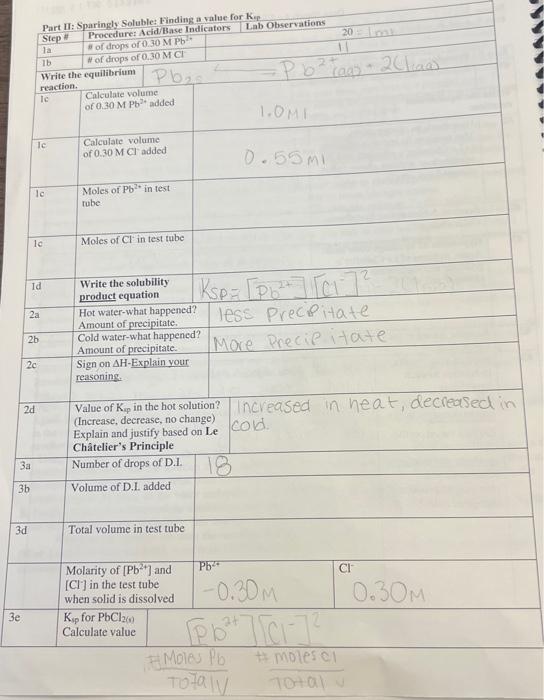 Part II: Sparingly Soluble: Finding a value for Ksp
Step # Procedure: Acid/Base Indicators Lab Observations
1a # of drops of 0.30 M Pb2+ 20 = 1 ml
1b # of drops of 0.30 M Cl- 11
Write the equilibrium reaction. Pb2s ← = Pb2+(aq) + 2Cl(aq)
1c Calculate volume of 0.30 M Pb2+ added 1.0 Ml
1c Calculate volume of 0.30 M Cl- added 0.55 Ml
1c Moles of Pb2+ in test tube
1c Moles of Cl- in test tube
1d Write the solubility product equation Ksp = [Pb2+] [Cl-]2
2a Hot water-what happened? Amount of precipitate. less Precpitate
2b Cold water-what happened? Amount of precipitate. More Precipitate
2c Sign on ΔH-Explain your reasoning.
2d Value of Ksp in the hot solution? (Increase, decrease, no change) Explain and justify based on Le Châtelier's Principle Increased in heat, decreased in cold.
3a Number of drops of D.I. 18
3b Volume of D.I. added
3d Total volume in test tube
Molarity of [Pb2+] and [Cl-] in the test tube when solid is dissolved Pb2+ -0.30M Cl- 0.30M
3e Ksp for PbCl2(s) Calculate value [Pb2+][Cl-]2
# Moles Pb # moles cl
Total V Total v